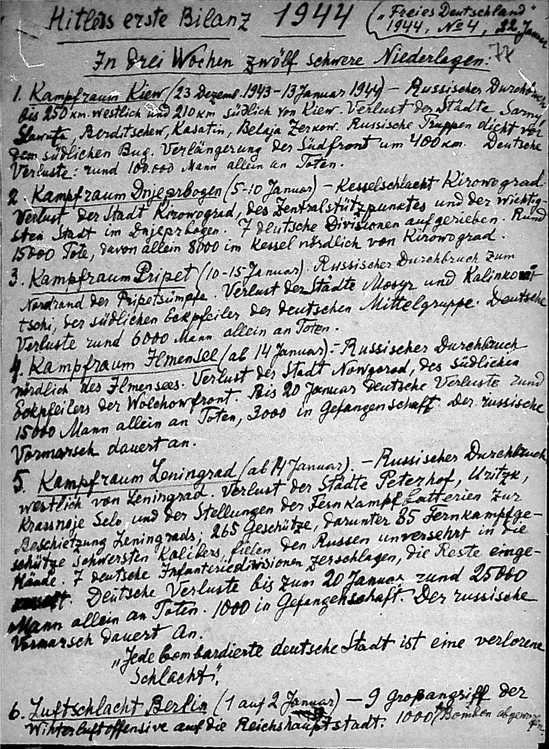 Hitlers erste Bilanz 1944 („Freies Deutschland"
1944, No 4, 22 Januar
77
In drei Wochen zwölf schwere Niederlagen:
1. Kampfraum Kiew (23 Dezemb. 1943 - 13 Januar 1944) - Russischer Durchbruch
bis 250 km westlich und 210 km südlich von Kiew. Verlust der Städte Sarny,
Slawuta, Berditschew, Kasatin, Belaja Zerkow. Russische Truppen dicht vor
dem südlichen Bug. Verlängerung der Südfront um 400 km. Deutsche
Verluste: rund 100.000 Mann allein an Toten.
2. Kampfraum Dnjeprbogen (5-10 Januar) - Kesselschlacht Kirowograd.
Verlust der Stadt Kirowograd, des Zentralstützpunktes und der wichtig-
sten Stadt im Dnjeprbogen. 7 deutsche Divisionen aufgerieben. Rund
15000 Tote, davon allein 8000 im Kessel nördlich von Kirowograd.
3. Kampfraum Pripet (10-15 Januar). Russischer Durchbruch zum
Nordrand der Pripetsümpfe. Verlust der Städte Mosyr und Kalinkowi
tschi, der südlichen Eckpfeiler der deutschen Mittelgruppe. Deutsche
Verluste rund 6000 Mann allein an Toten.
4. Kampfraum Ilmensee (ab 14 Januar) - Russischer Durchbruch
nördlich des Ilmensees. Verlust der Stadt Nowgorod, des südlichen
Eckpfeilers der Wolchowfront. Bis 20 Januar deutsche Verluste rund
15000 Mann allein an Toten, 3000 in Gefangenschaft. Der russische
Vormarsch dauert an.
5. Kampfraum Leningrad (ab 14 Januar). - Russischer Durchbruch
westlich von Leningrad. Verlust der Städte Peterhof, Uritzk,
Krassnoje Selo, und der Stellungen der Fernkampfbatterien zur
Beschietzung Leningrads, 265 Geschütze, darunter 85 Fernkampfge-
schütze schwersten Kalibers, fielen den Russen unversehrt in die
Hände. 7 deutsche Infanteriedivisionen zerschlagen, die Reste einge-
Deutsche Verluste bis zum 20 Januar rund 25000
Mann allein an Toten. 1000 in Gefangenschaft. Der russische
Vormarsch dauert an.
„Jede bombardierte deutsche Stadt ist eine verlorene
Schlacht",
6. Luftschlacht Berlin (1 auf 2 Januar) - 9 Grossangriff der
Winterluftoffensive auf die Reichshauptstadt. 1000 t Bomben abgeworfen.